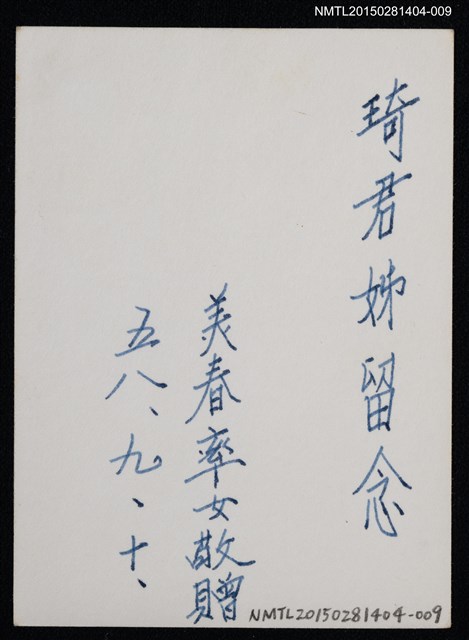 NMTL20150281404-009
琦君姊留念
美春率女敬贈
五八、九、十、
NMTL20150281404-009